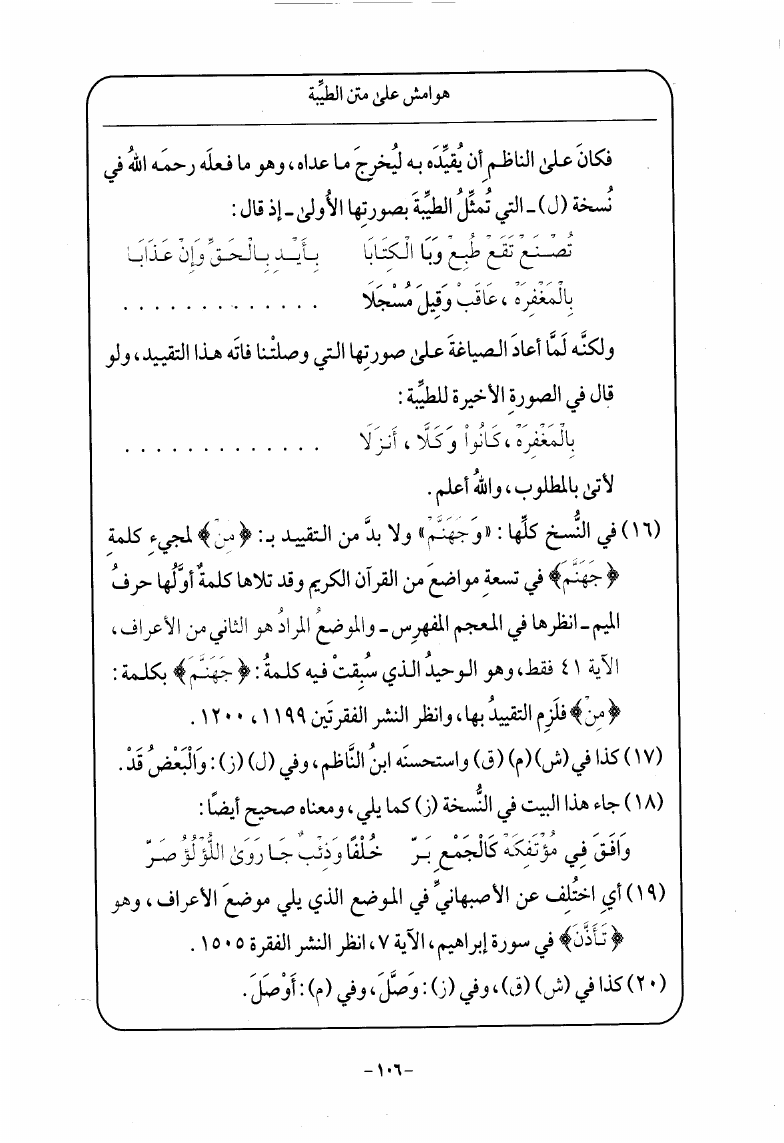 هوامش على متن الطيِّبة
فكانَ على الناظمِ أن يُقيِّدَه به ليُخرجَ ما عداه، وهو ما فعلَه رحمَه اللهُ في
نُسخة (ل) ـ التي تُمثِّلُ الطيِّبةَ بصورتِها الأُولى ـ إذ قال :
تَصْنَعْ تَقَعْ طُبِعْ وَبَا الْكِتَابَا بِأَيْدِ بِالْحَقِّ وَإِنْ عَذَابَا
بِالْمَغْفِرَهْ ، عَاقَبْ وَقِيلَ مُسْجَلَا . . . . . . . . . . . . .
ولكنَّه لَمَّا أعادَ الصياغةَ على صورتِها التي وصلتْنا فاتَه هذا التقييد، ولو
قال في الصورةِ الأخيرة للطيِّبة :
بِالْمَغْفِرَهْ ، كَانُوا وَكَلَّا ، أَنزَلَا . . . . . . . . . . . . .
لأتى بالمطلوب، واللهُ أعلم .
(١٦) في النُّسخ كلِّها : «وَجَهَنَّم» ولا بدَّ من التقييد بـ : ﴿مِنْ﴾ لمجيءِ كلمةِ
﴿جَهَنَّمَ﴾ في تسعةِ مواضعَ من القرآن الكريم وقد تلاها كلمةٌ أوَّلُها حرفُ
الميم ـ انظرها في المعجم المفهرس ـ والموضعُ المرادُ هو الثاني من الأعراف،
الآية ٤١ فقط، وهو الوحيدُ الذي سُبقتْ فيه كلمةُ : ﴿جَهَنَّمَ﴾ بكلمة :
﴿مِنْ﴾ فلَزِم التقييدُ بها، وانظر النشر الفقرتَين ١١٩٩ ، ١٢٠٠ .
(١٧) كذا في (ش) (م) (ق) واستحسنَه ابنُ النَّاظم، وفي (ل) (ز) : وَالْبَعْضُ قَدْ .
(١٨) جاء هذا البيت في النُّسخة (ز) كما يلي، ومعناه صحيح أيضًا :
وَافَقَ فِي مُؤْتَفِكَهْ كَالْجَمْعِ بَرّ خُلْفًا وَذِئْبٌ جَا رَوَى اللُّؤْلُؤُ صَرّ
(١٩) أي اختُلِف عن الأصبهانيِّ في الموضع الذي يلي موضعَ الأعراف، وهو
﴿تَأَذَّنَ﴾ في سورة إبراهيم، الآية ٧، انظر النشر الفقرة ١٥٠٥ .
(٢٠) كذا في (ش) (ق)، وفي (ز) : وَصَّلَ، وفي (م) : أَوْصَلَ .
-١٠٦-